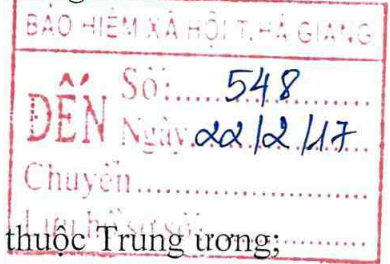 BẢO HIỂM XÃ HỘI T. HÀ GIANG
ĐẾN
Số:.....548
Ngày.22/2/17
Chuyển
Lưu hồ sơ số:
thuộc Trung ương;